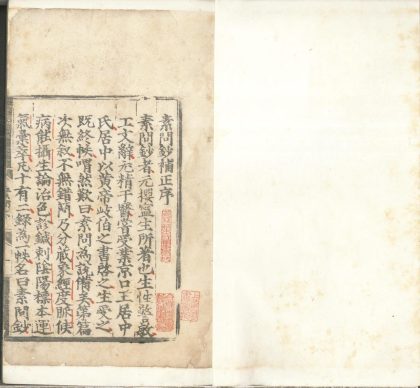 素問鈔補正序
素問鈔者元攖寧生所著也生性聰敏
工文辭尤精于醫嘗受業京口王居中
氏居中以黃帝岐伯之書啓之生受之
既終帙喟然歎曰素問為說備矣第篇
次無敘不無錯簡乃分藏象經度脉候
病能攝生論治色診鍼刺陰陽標本運
氣彙萃凡十有二鈔為一帙名曰素問鈔